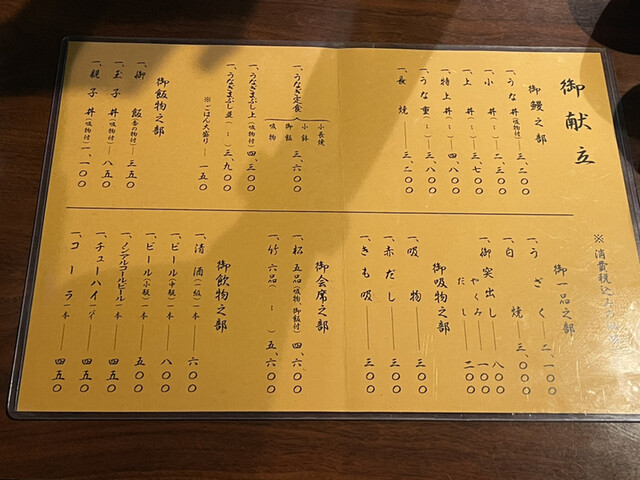 御献立
※消費税込み
御鰻之部
一、うな丼(吸物付)三、二〇〇
一、小丼(〃)二、三〇〇
一、上丼(〃)三、七〇〇
一、特上丼(〃)四、八〇〇
一、うな重(〃)三、八〇〇
一、長焼三、二〇〇
一、うなぎ定食
小長焼
小鉢
御飯
吸物
三、六〇〇
一、うなぎまぶし上(吸物付)四、三〇〇
一、うなぎまぶし並(〃)三、九〇〇
※ごはん大盛り一五〇
御飯物之部
一、御飯(香の物付)三五〇
一、玉子丼(吸物付)八五〇
一、親子丼(吸物付)一、一〇〇
御一品之部
一、うざく二、一〇〇
一、白焼三、〇〇〇
一、御突出し八〇〇
やくみ一〇〇
だし二〇〇
御吸物之部
一、吸物三〇〇
一、赤だし三〇〇
一、きも吸三〇〇
御会席之部
一、松五品(吸物、御飯付)四、六〇〇
一、竹六品(〃)五、六〇〇
御飲物之部
一、清酒(二級)一本六〇〇
一、ビール(中瓶)一本八〇〇
一、ビール(小瓶)一本五〇〇
一、ノンアルコールビール一本四五〇
一、チューハイ一本四五〇
一、コーラ一本四五〇